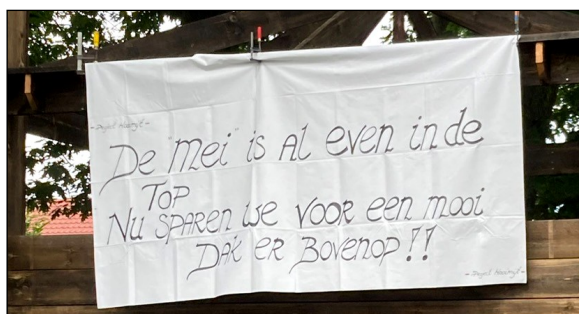 De "mei" is al even in de
Top
Nu sparen we voor een mooi
Dak er bovenop!!